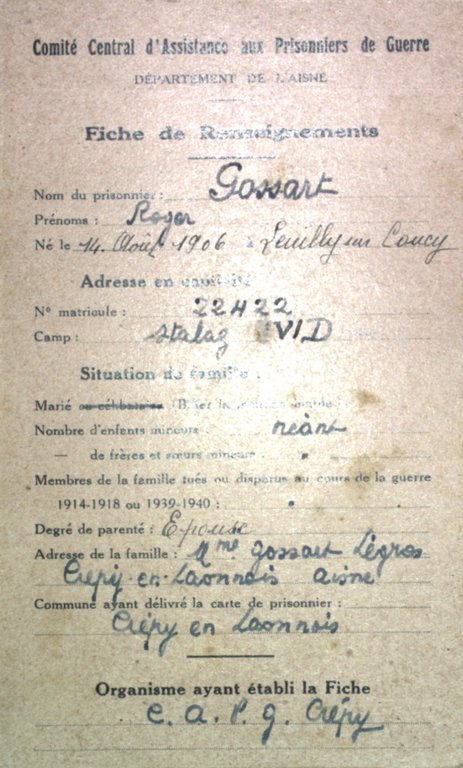 Comité Central d'Assistance aux Prisonniers de Guerre
DÉPARTEMENT DE L'AISNE
Fiche de Renseignements
Nom du prisonnier : Gossart
Prénoms : Roger
Né le 14 Août 1906 à Leuilly sur Coucy
Adresse en captivité
N° matricule : 22422
Camp : Stalag VID
Situation de famille :
Marié ou célibataire (Biffer la mention inutile)
Nombre d'enfants mineurs : néant
— de frères et sœurs mineurs : "
Membres de la famille tués ou disparus au cours de la guerre
1914-1918 ou 1939-1940 : "
Degré de parenté : Epouse
Adresse de la famille : Mme Gossart Légros
Crépy-en-Laonnois Aisne
Commune ayant délivré la carte de prisonnier :
Crépy en Laonnois
Organisme ayant établi la Fiche
C. A. P. G. Crépy